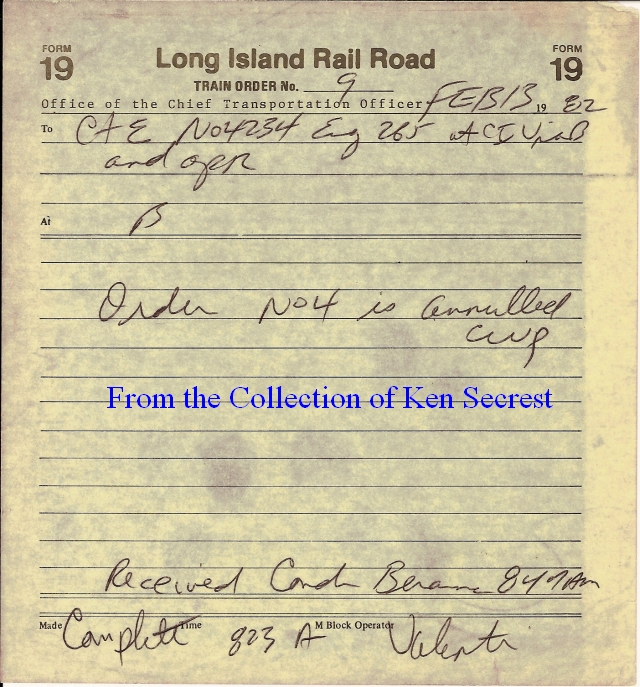 FORM 19
Long Island Rail Road
FORM 19
TRAIN ORDER No. 9
Office of the Chief Transportation Officer FEB 13 19 82
To C&E No4234 Eng 265 at
and opr
At B
Order No4 is annulled
From the Collection of Ken Secrest
Received Condr 847AM
Made Complete Time 823 A M Block Operator Valenti